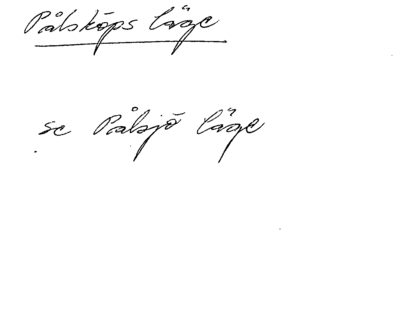 Pålsköps läge
se Pålsjö läge